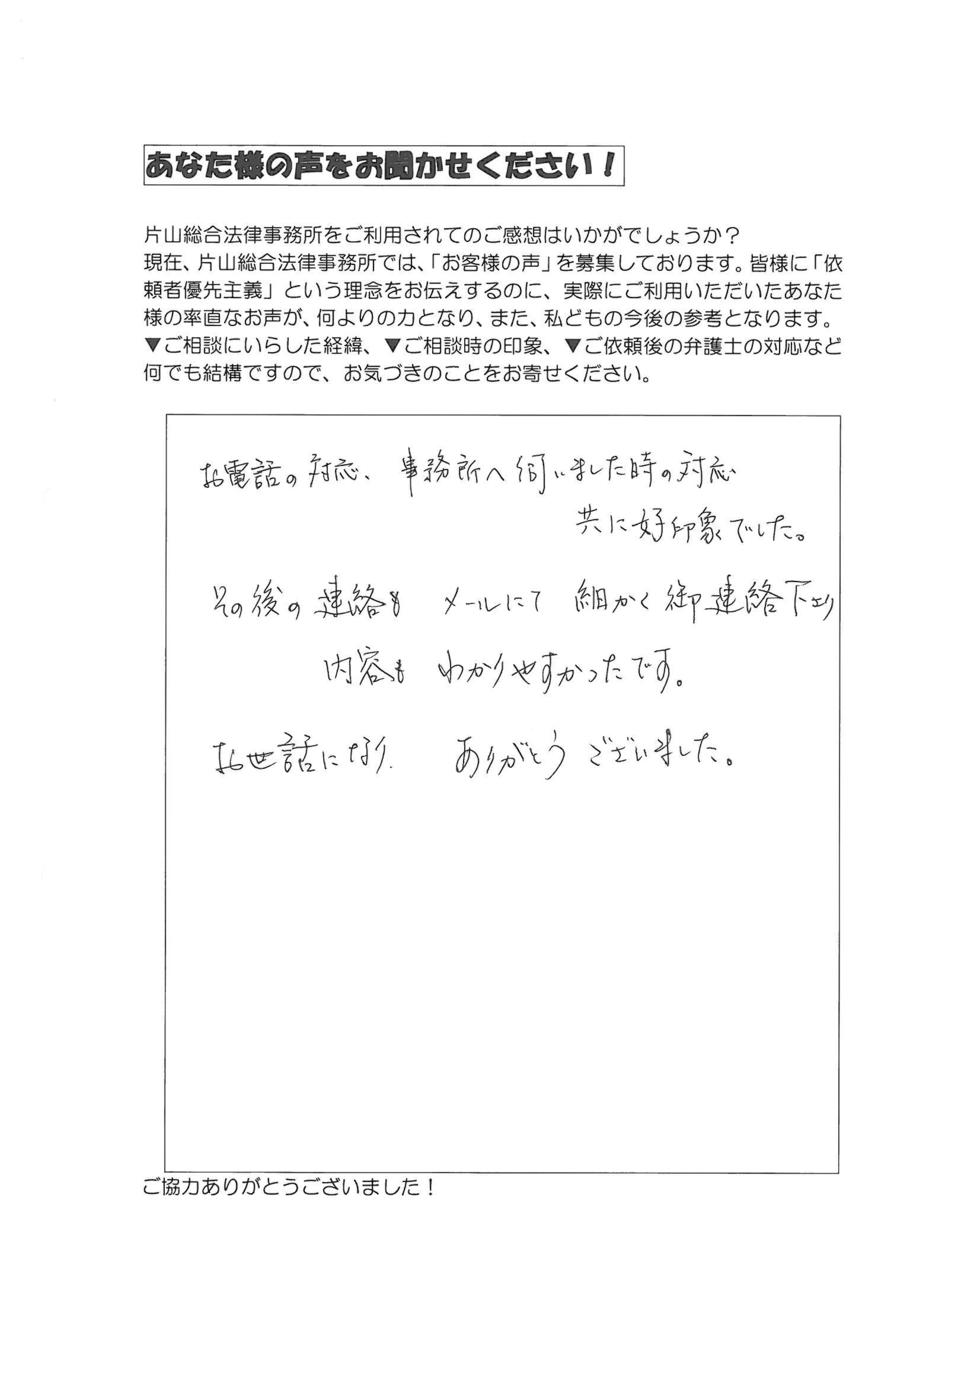 あなた様の声をお聞かせください！
片山総合法律事務所をご利用されてのご感想はいかがでしょうか？
現在、片山総合法律事務所では、「お客様の声」を募集しております。皆様に「依
頼者優先主義」という理念をお伝えするのに、実際にご利用いただいたあなた
様の率直なお声が、何よりの力となり、また、私どもの今後の参考となります。
▼ご相談にいらした経緯、▼ご相談時の印象、▼ご依頼後の弁護士の対応など
何でも結構ですので、お気づきのことをお寄せください。
お電話の対応、事務所へ伺いました時の対応
共に好印象でした。
その後の連絡も メールにて 細かく御連絡下さり
内容も わかりやすかったです。
お世話になり、 ありがとうございました。
ご協力ありがとうございました！